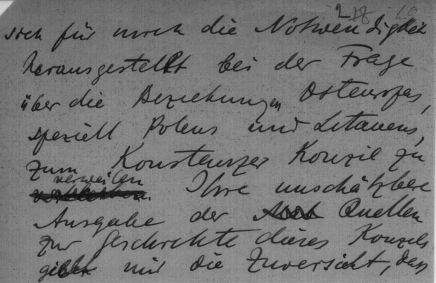 sich für mich die Notwendigkeit
herausgestellt bei der Frage
über die Beziehungen Osteuropas,
speziell Polens und Litauens,
zum Konstanzer Konzil zu
verweilen Ihre unschätzbare
Ausgabe der Quellen
zur Geschichte dieses Konzils
gibt mir die Zuversicht, dass